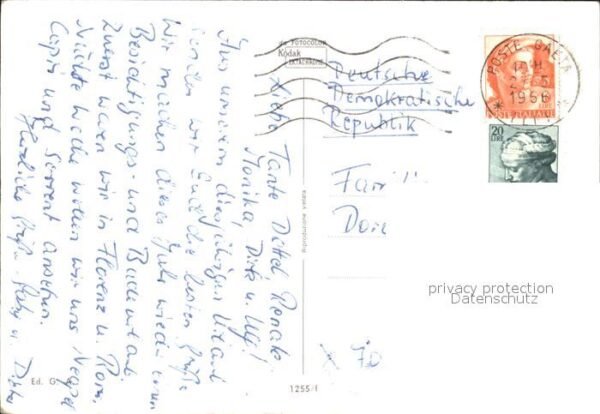 Liebe Tante Dittel, Renate,
Monika, Dirk u. Ulf!
Aus unserem diesjährigen Urlaub
senden wir Euch die besten Grüße
Wir machen dieses Jahr wieder einen
Besichtigungs- und Badeurlaub.
Zuerst waren wir in Florenz u. Rom.
Nächste Woche wollen wir uns Neapel
Capri und Sorrent ansehen.
Herzliche Grüße
u. Dieter
da FOTOCOLOR
Kodak
EKTACHROME
Deutsche
Demokratische
Republik
Famili
Dor
POSTE GAETA
1966
POSTE ITALIANE
20
LIRE
Riproduzione vietata
privacy protection
Datenschutz
Ed. G.
1255/f
70